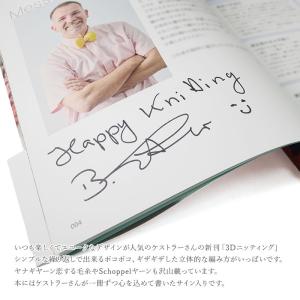 Mos
Happy KniDing
004
いつも楽しくてユニークなデザインが人気のケストラーさんの新刊「3Dニッティング」
シンプルな繰り返しで出来るボコボコ、ギザギザした立体的な編み方がいっぱいです。
ヤナギヤーン恋する毛糸やSchoppelヤーンも沢山載っています。
本にはケストラーさんが一冊ずつ心を込めて書いたサイン入りです。